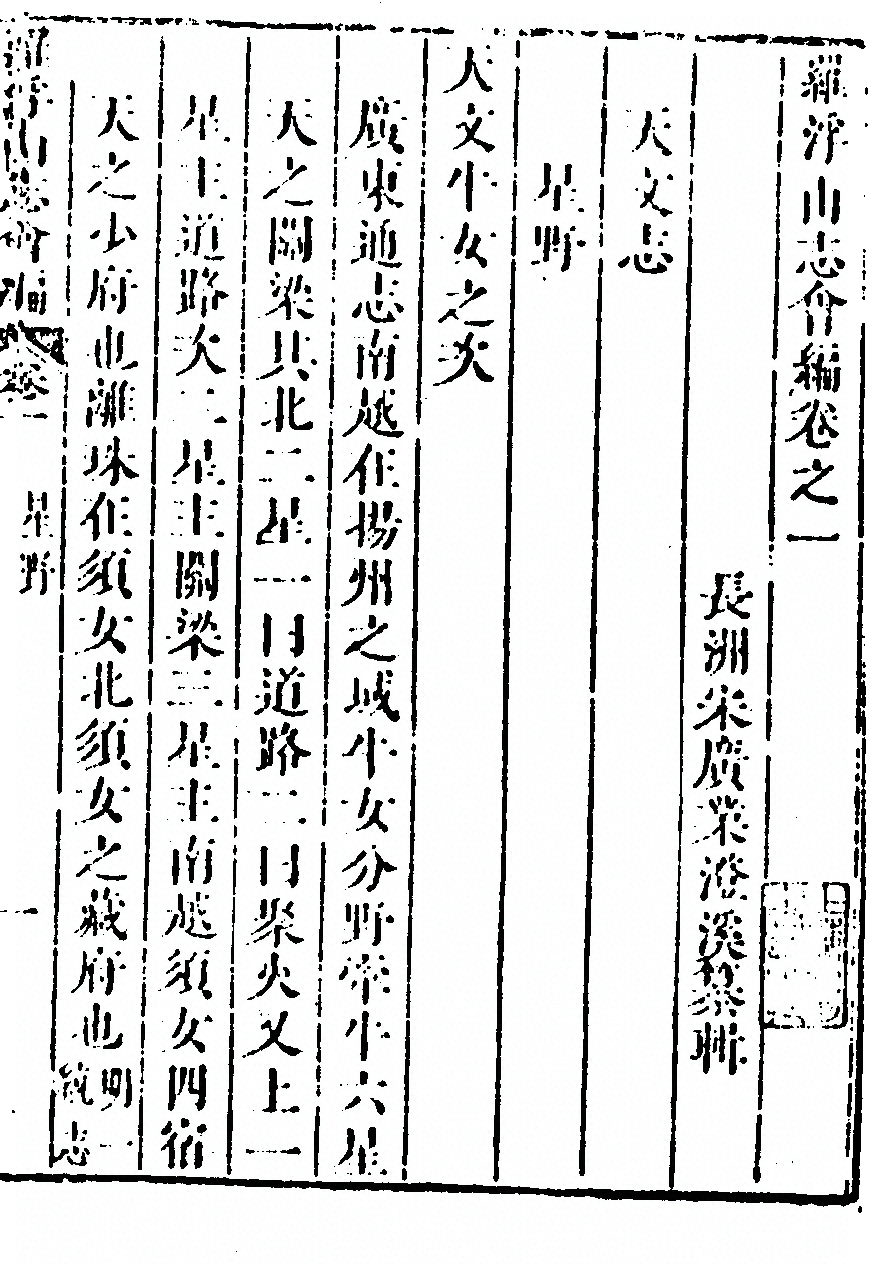 羅浮山志會編卷之一
長洲宋廣業澄溪纂輯
天文志
星野
天文牛女之次
廣東通志南越在揚州之域牛女分野牽牛六星
天之關梁其北二星一曰道路二曰聚火又上一
星主道路次二星主關梁三星主南越須女四宿
天之少府也離珠在須女北須女之藏府也明一
統志
羅浮山志會編卷一
星野
一